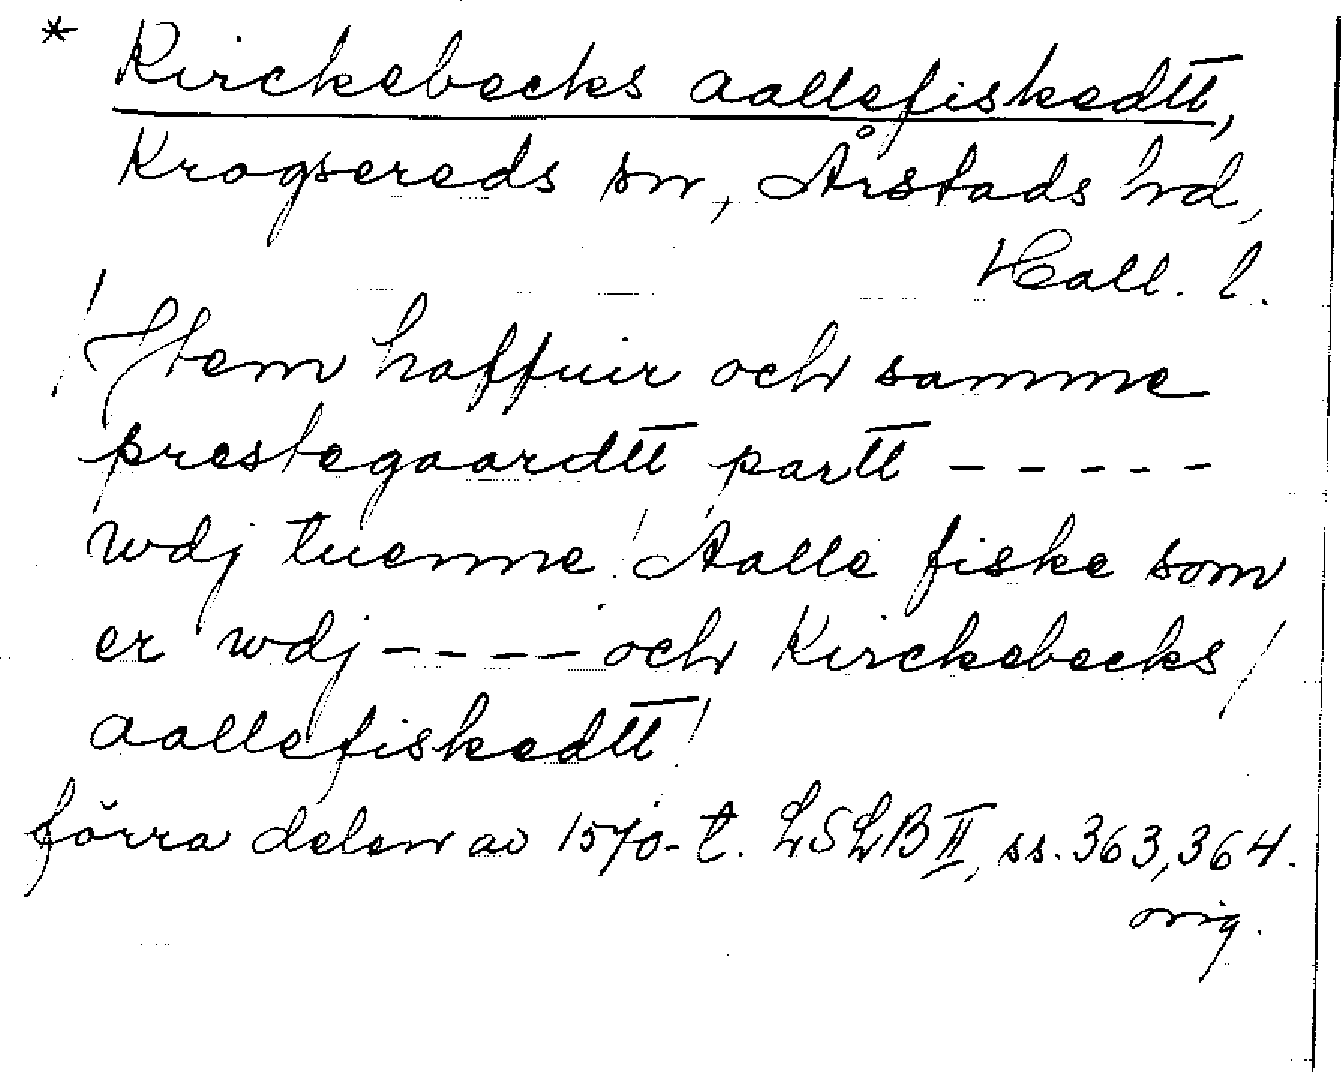 * Kirckebecks aallefiskedtt,
Krogsereds sn, Årstads hd,
Hall. l.
/Jtem haffuir och samme
prestegaardtt partt - - - - -
wdj tuenne! Aalle fiske som
er wdj - - - - och Kirckebecks/
aallefiskedtt!
förra delen av 1570-t. LSLB II, ss. 363, 364.
orig.